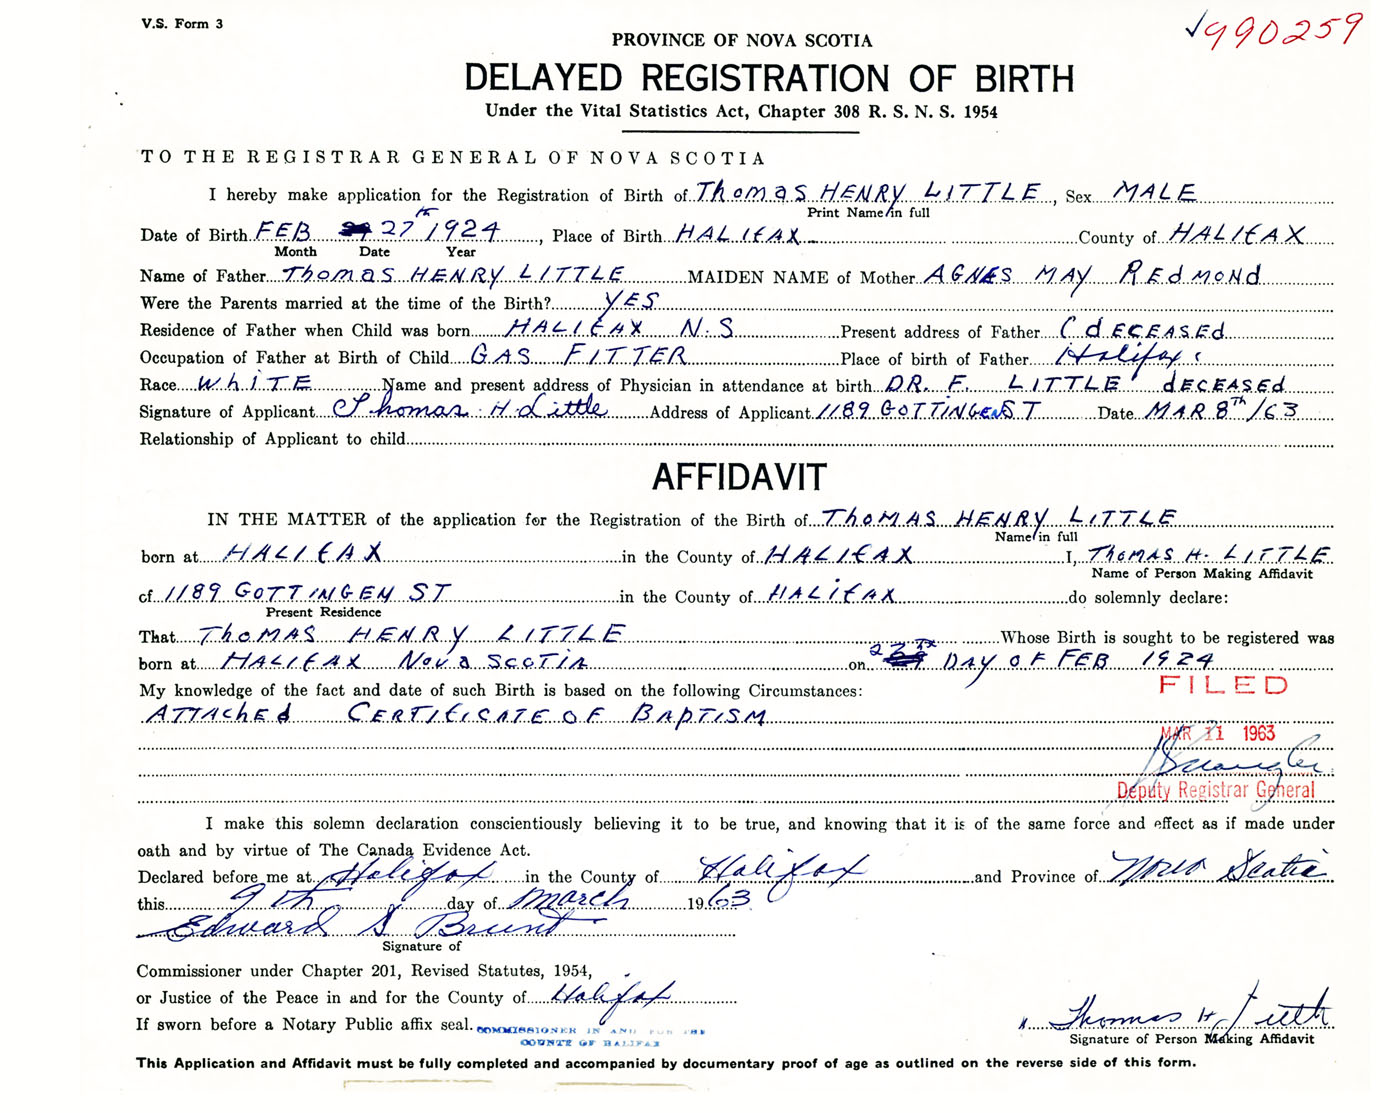 V.S. Form 3
990259
PROVINCE OF NOVA SCOTIA
DELAYED REGISTRATION OF BIRTH
Under the Vital Statistics Act, Chapter 308 R. S. N. S. 1954
TO THE REGISTRAR GENERAL OF NOVA SCOTIA
I hereby make application for the Registration of Birth of Thomas HENRY LITTLE, Sex MALE
Print Name in full
Date of Birth FEB 27th 1924, Place of Birth HALIFAX County of HALIFAX
Month Date Year
Name of Father Thomas HENRY LITTLE MAIDEN NAME of Mother AGNES MAY REdMONd
Were the Parents married at the time of the Birth? YES
Residence of Father when Child was born HALIFAX N.S Present address of Father (dECEASEd
Occupation of Father at Birth of Child GAS FITTER Place of birth of Father Halifax
Race WhITE Name and present address of Physician in attendance at birth DR. F. LITTLE dECEASEd
Signature of Applicant Thomas H. Little Address of Applicant 1189 GOTTINGEN ST Date MAR 8Th/63
Relationship of Applicant to child
AFFIDAVIT
IN THE MATTER of the application for the Registration of the Birth of ThOMAS HENRY LITTLE
Name in full
born at HALIFAX in the County of HALIFAX I, ThOMAS H. LITTLE
Name of Person Making Affidavit
of 1189 GOTTINGEN ST in the County of HALIFAX do solemnly declare:
Present Residence
That ThOMAS HENRY LITTLE Whose Birth is sought to be registered was
born at HALIFAX NOVA SCOTIA on DAY OF FEB 1924
My knowledge of the fact and date of such Birth is based on the following Circumstances:
ATTAChEd CERTIFICATE OF BAPTISM
FILED
MAR 11 1963
Deputy Registrar General
I make this solemn declaration conscientiously believing it to be true, and knowing that it is of the same force and effect as if made under
oath and by virtue of The Canada Evidence Act.
Declared before me at Halifax in the County of Halifax and Province of Nova Scotia
this 9th day of March 1963
Edward S Brunt
Signature of
Commissioner under Chapter 201, Revised Statutes, 1954,
or Justice of the Peace in and for the County of Halifax
If sworn before a Notary Public affix seal. COMMISSIONER IN AND FOR THE
COUNTY OF HALIFAX
Thomas H. Little
Signature of Person Making Affidavit
This Application and Affidavit must be fully completed and accompanied by documentary proof of age as outlined on the reverse side of this form.